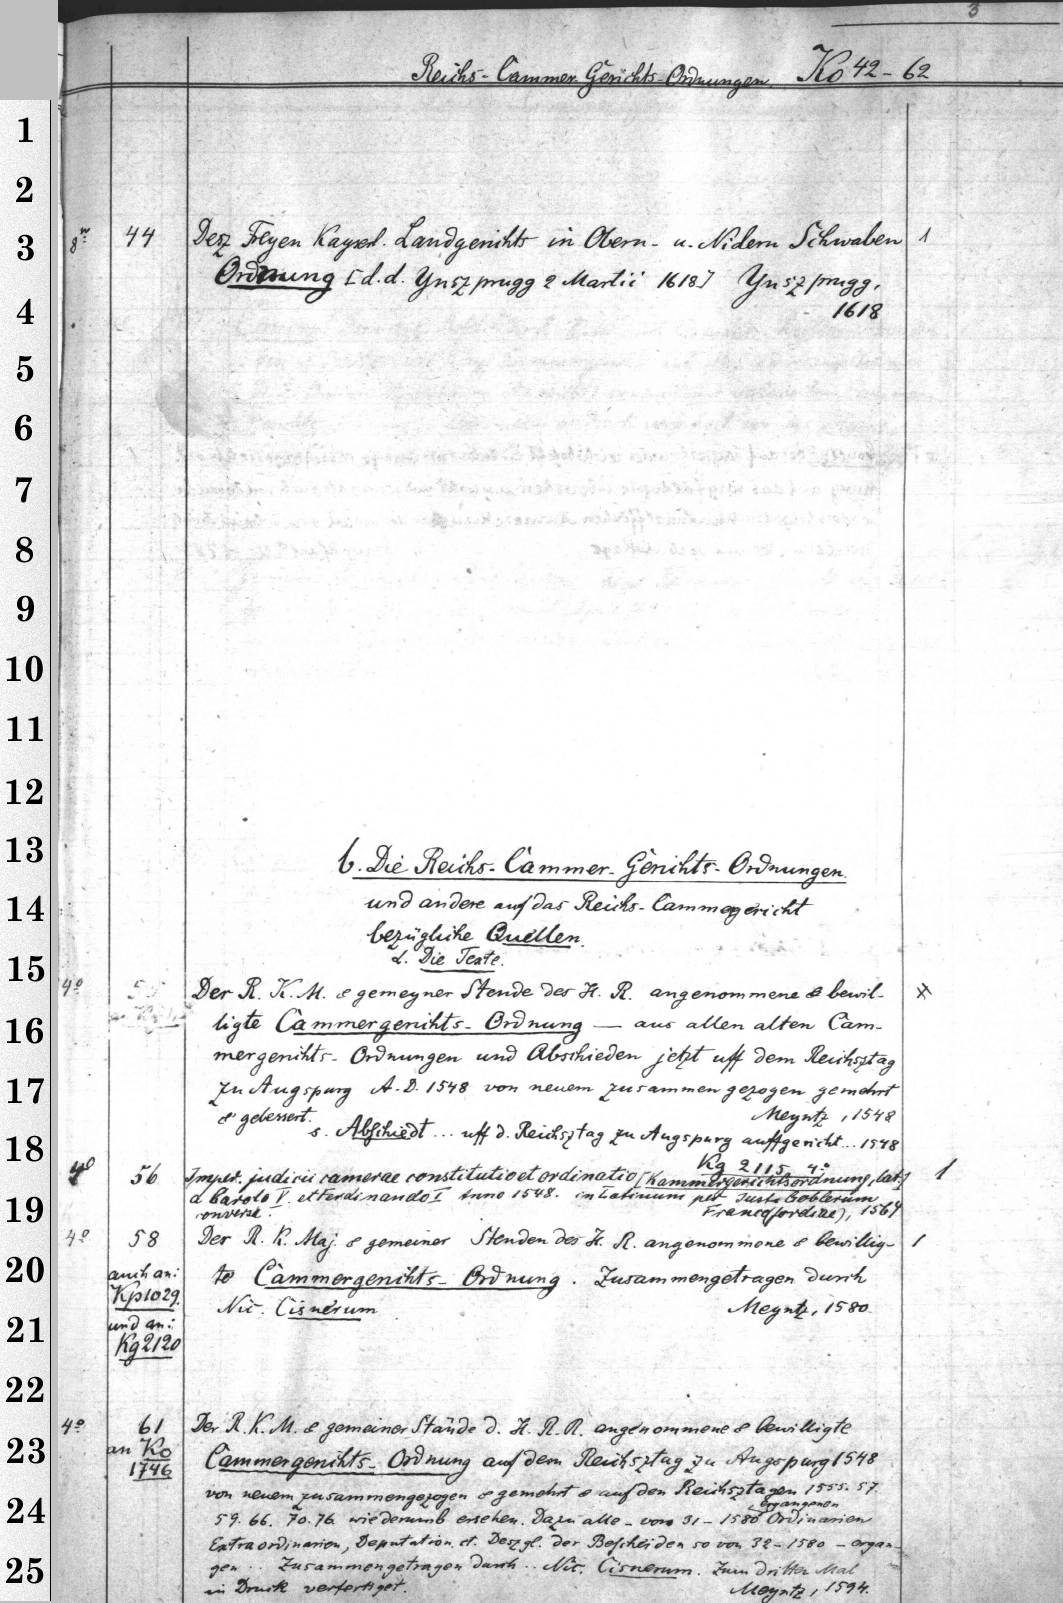 3
Reichs-Cammer-Gerichts-Ordnungen. Ko 42-62
1
2
3 8° 44 Desz Freyen Kayserl. Landgerichts in Obern- u. Nidern Schwaben 1
Ordnung [d.d. Ynszprugg 2 Martii 1618] Ynszprugg,
4 1618
5
6
7
8
9
10
11
12
13 b. Die Reichs-Cammer-Gerichts-Ordnungen
14 und andere auf das Reichs-Cammergericht
bezügliche Quellen.
15 α. Die Texte.
4° 55 Der R. K. M. & gemeyner Stende des H. R. angenommene & bewil-
16 ligte Cammergerichts-Ordnung — aus allen alten Cam-
mergerichts-Ordnungen und Abschieden jetzt uff dem Reichsztag
17 zu Augspurg A.D. 1548 von neuem zusammen gezogen gemehrt
& gebessert. Meyntz, 1548
18 s. Abschiedt ... uff d. Reichsztag zu Augspurg auffgericht ... 1548
Kg 2115 4°
4° 56 Imper. judicii camerae constitutio et ordinatio [Kammergerichtsordnung, lat.] 1
19 a Carolo V. et Ferdinando I anno 1548. in Latinum per Justi Goblerum
converse. Francof(ordiae), 1564
4° 58 Der R. K. Maj. & gemeiner Stenden des H. R. angenommene & bewillig- 1
20 auch an: te Cammergerichts-Ordnung. Zusammengetragen durch
Kp 1029. Nic. Cisnerum Meyntz, 1580.
21 und an:
Kg 2120
22
4° 61 Der R. K. M. & gemeiner Stände d. H. R. R. angenommene & bewilligte
23 an Ko Cammergerichts-Ordnung auf dem Reichsztag zu Augspurg 1548
1746
von neuem zusammengezogen & gemehrt & auf den Reichsztagen 1555. 57.
24 59. 66. 70. 76. wiederumb ersehen. Dazu alle - von 31-1580 ergangenen Ordinarien
Extraordinarien, Deputation. et. Deszgl. der Bescheiden so von 32-1580 - ergan-
25 gen .. Zusammengetragen durch .. Nic. Cisnerum. Zum dritten Mal
in Druck verfertiget. Meyntz, 1594.